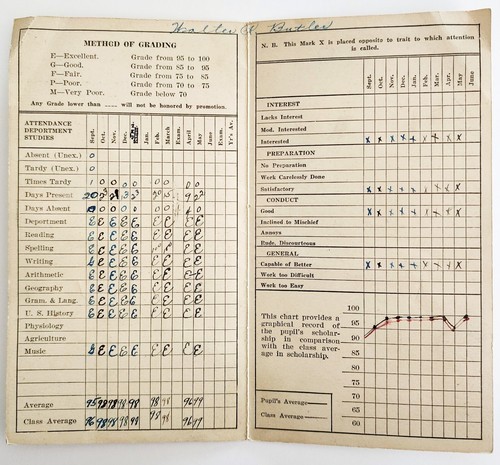 METHOD OF GRADING
E—Excellent. Grade from 95 to 100
G—Good. Grade from 85 to 95
F—Fair. Grade from 75 to 85
P—Poor. Grade from 70 to 75
M—Very Poor. Grade below 70
Any Grade lower than will not be honored by promotion.
ATTENDANCE
DEPORTMENT
STUDIES
Sept. Oct. Nov. Dec. Jan. Feb. March Exam. April May June Exam. Yr's Av.
Absent (Unex.) 0
Tardy (Unex.) 0
Times Tardy
Days Present
Days Absent
Deportment E E E E E E E E E
Reading E E E E E E E E E
Spelling
Writing E E E E E E E E E
Arithmetic E E E E E E E E E
Geography E E E E E E E E E
Gram. & Lang. E E E E E E E E E
U. S. History E E E E E E E E E
Physiology
Agriculture
Music
Average 95 98 98 98 98 98 98 96 99
Class Average
N. B. This Mark X is placed opposite to trait to which attention
is called.
Sept. Oct. Nov. Dec. Jan. Feb. Mar. Apr. May June
INTEREST
Lacks Interest
Mod. Interested
Interested x x x x x x x x x
PREPARATION
No Preparation
Work Carelessly Done
Satisfactory x x x x x x x x x
CONDUCT
Good x x x x x x x x x
Inclined to Mischief
Annoys
Rude, Discourteous
GENERAL
Capable of Better x x x x x x x x x
Work too Difficult
Work too Easy
This chart provides a
graphical record of
the pupil's scholar-
ship in comparison
with the class aver-
age in scholarship.
100
95
90
85
80
75
70
65
60
Pupil's Average
Class Average